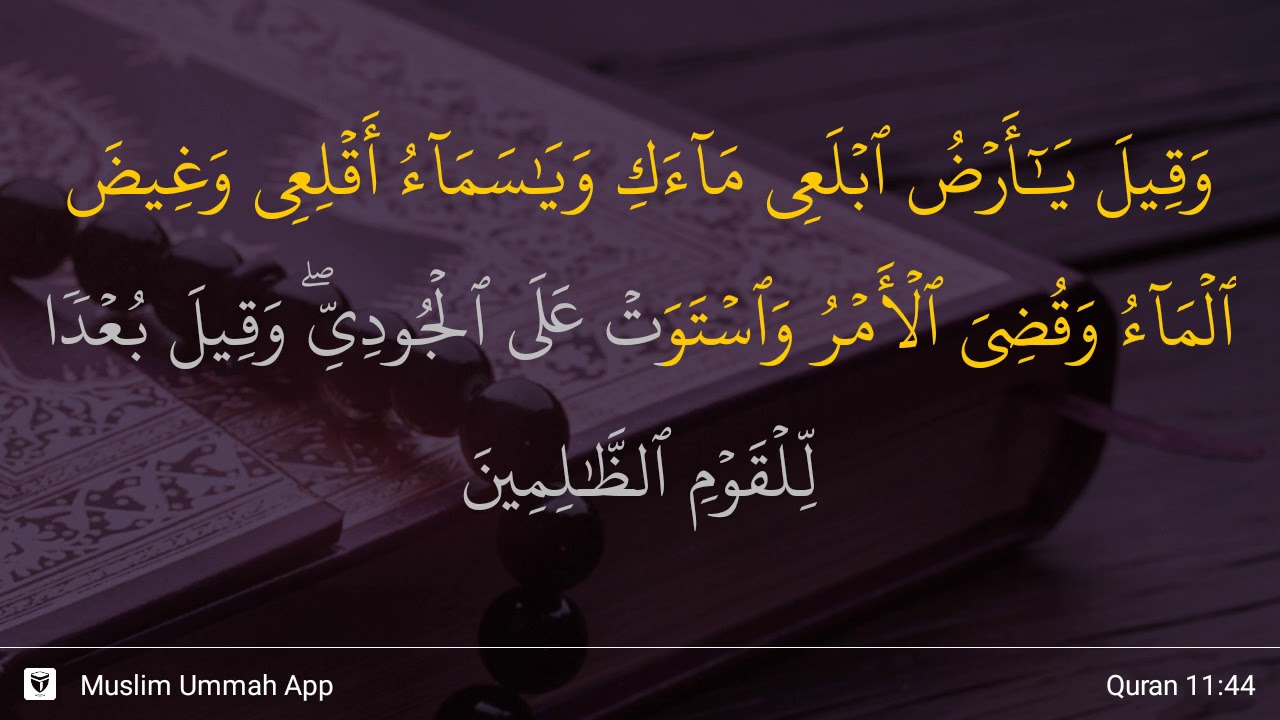 وَقِيلَ يَـٰٓأَرۡضُ ٱبۡلَعِى مَآءَكِ وَيَـٰسَمَآءُ أَقۡلِعِى وَغِيضَ
ٱلۡمَآءُ وَقُضِىَ ٱلۡأَمۡرُ وَٱسۡتَوَتۡ عَلَى ٱلۡجُودِىِّۖ وَقِيلَ بُعۡدًا
لِّلۡقَوۡمِ ٱلظَّـٰلِمِينَ
Muslim Ummah App
Quran 11:44